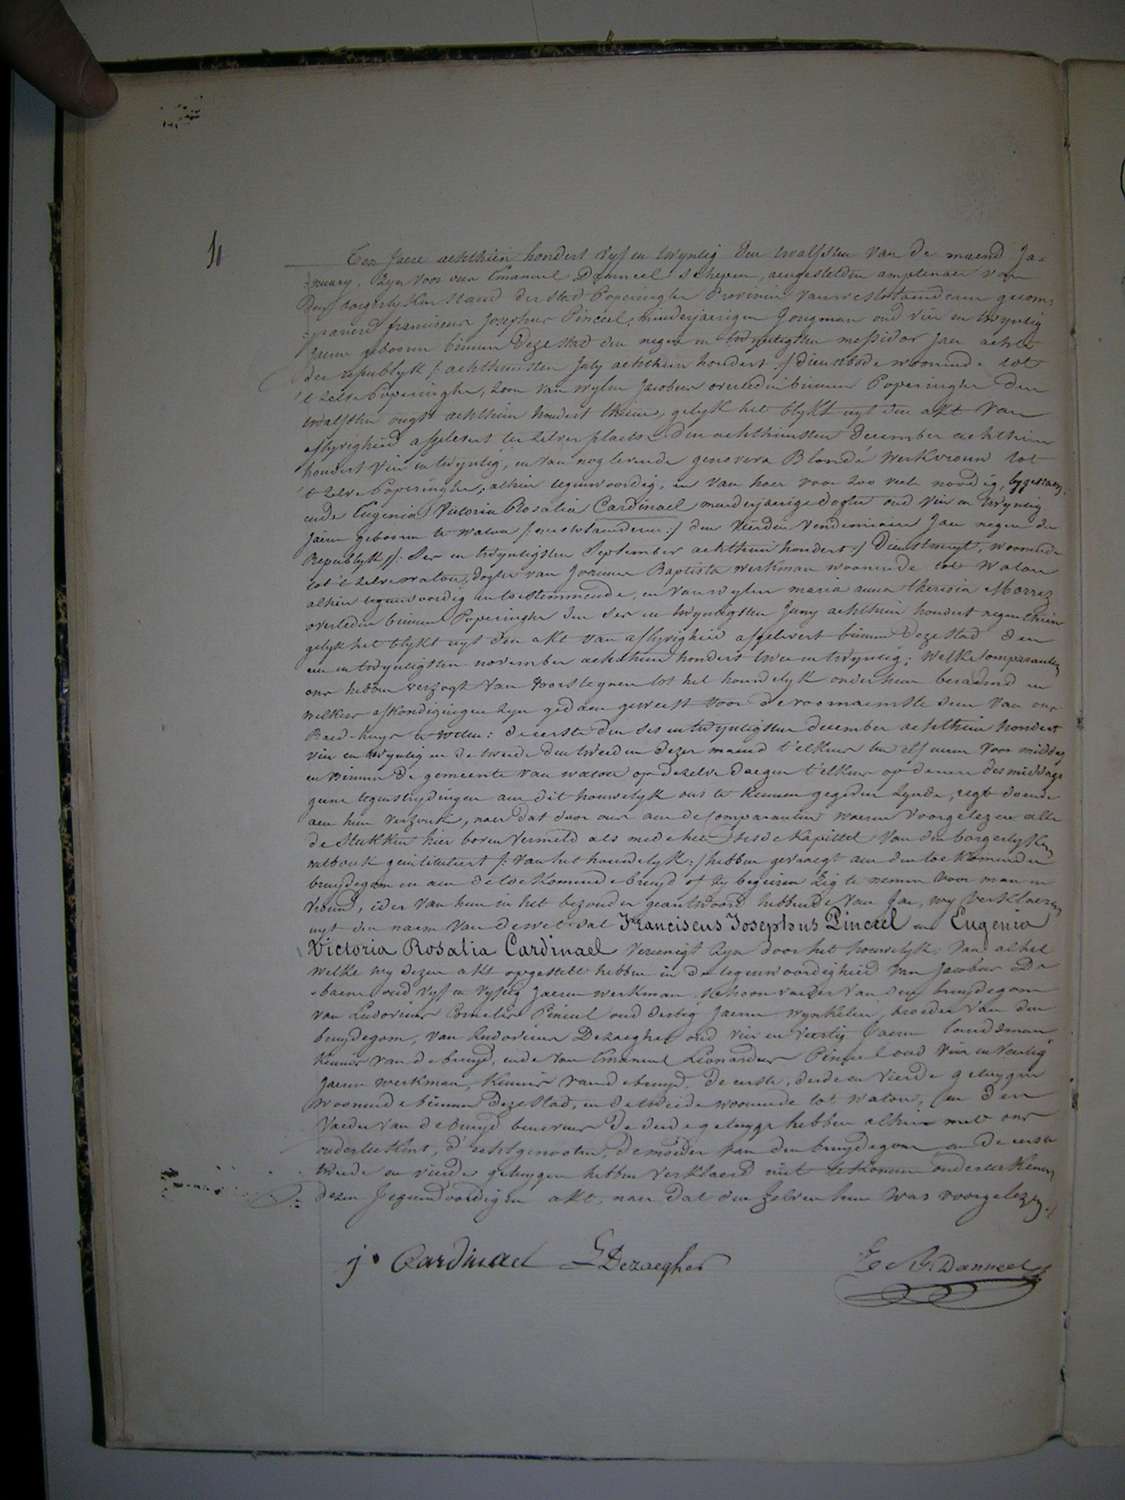 Ten Jaere achthien hondert vyf en twyntig den twalfsten van de maend Ja-
nuary, Zyn voor ons Emanuel Danneel schepen, aengestelden amptenaer van
den borgerlyken stand der stad Poperinghe Provincie van westvlaenderen gecom-
pareerd franciscus Josephus Pinceel, minderjaerigen Jongman oud vier en twyntig
Jaeren geboren binnen deze stad den negen en twyntigsten messidor Jaer achtste
der republyk /: achthiensten July achthien hondert :/ dienstbode woonende tot
't zelve Poperinghe, zoon van wylen Jacobus overleden binnen Poperinghe den
twalfsten ougst achthien hondert thiene, gelyk het blykt uyt den akt van
aflyvigheid afgelevert ter zelver plaets den achthiensten december achthien
hondert vier en twyntig, en van nog levende genovera Blondé werkvrouw tot
't zelve Poperinghe, alhier tegenwoordig, en van haer voor zoo veel noodig, bygestaen,
ende Eugenia Victoria Rosalia Cardinael minderjaerige dogter oud vier en twyntig
Jaeren geboren te watou /: westvlaenderen :/ den vierden vendemiaire Jaer negen der
Republyk /: Ses en twyntigsten September achthien hondert :/ dienstmeyd, woonende
tot 't zelve watou, dogter van Joannes Baptista werkman woonende tot Watou
alhier tegenwoordig en toestemmende, en van wylen maria anna theresia Morrez
overleden binnen Poperinghe den Ses en twyntigsten Juny achthien hondert negenthien
gelyk het blykt uyt den akt van aflyvigheid afgelevert binnen deze stad den
een en twyntigsten november achthien hondert twee en twyntig; Welke Comparanten
ons hebben verzogt van voorstegaen tot het houwelyk onder hun beraemd en
welkers afkondigingen Zyn gedaen geweest voor de voornaemste deure van ons
Raed-huys te weten: de eerste den ses en twyntigsten december achthien hondert
vier en twyntig en de tweede den tweeden dezer maend t'elkens ten elf uren voor middag
en binnen de gemeente van watou op dezelve daegen t'elkens op de uere des middags
geene tegenstrydingen aen dit houwelyk ons te kennen gegeven zynde, regt doende
aen hun verzoek, naer dat door ons aen de comparanten waeren voorgelezen alle
de Stukken hier boven vermeld als mede het Sesde Kapittel van den borgerlyken
wetboek geintituleert /: van het houwelyk :/ hebben gevraegt aen den toekomenden
bruydegom en aen de toekomende bruyd of zy begeiren Zig te nemen voor man en
vrouw, ider van hun in het bezonder geantwoord hebbende van Jae, wy verklaeren
uyt den naem van de wet dat Franciscus Josephus Pinceel en Eugenia
Victoria Rosalia Cardinael vereenigt Zyn door het houwelyk. Van al het
welke wy dezen akt opgestelt hebben in de tegenwoordigheid van Jacobus
oud vyf en vyftig Jaeren werkman schoonvaeder van den bruydegom
van Ludovicus Cornelis Pinceel oud dertig Jaeren Wynkelier, broeder van den
bruydegom, van Ludovicus Dezaegher oud vier en veertig Jaeren landsman
kennis van de bruyd, ende van Emanuel Leonardus Pinceel oud vier en veertig
Jaeren werkman, kennis van de bruyd, de eerste, derde en vierde getuygen
woonende binnen deze stad, en de tweede woonende tot watou; en den
Vaeder van de bruyd benevens de derde getuyge hebben alhier met ons
onderteekent, d'echtgenooten, de moeder van den bruydegom en de eerste
tweede en vierde getuygen hebben verklaerd niet te konnen onderteekenen
dezen Jegenwoordigen akt, naer dat den zelven hun was voorgelezen./.
j. Cardinael L Dezaegher E Danneel